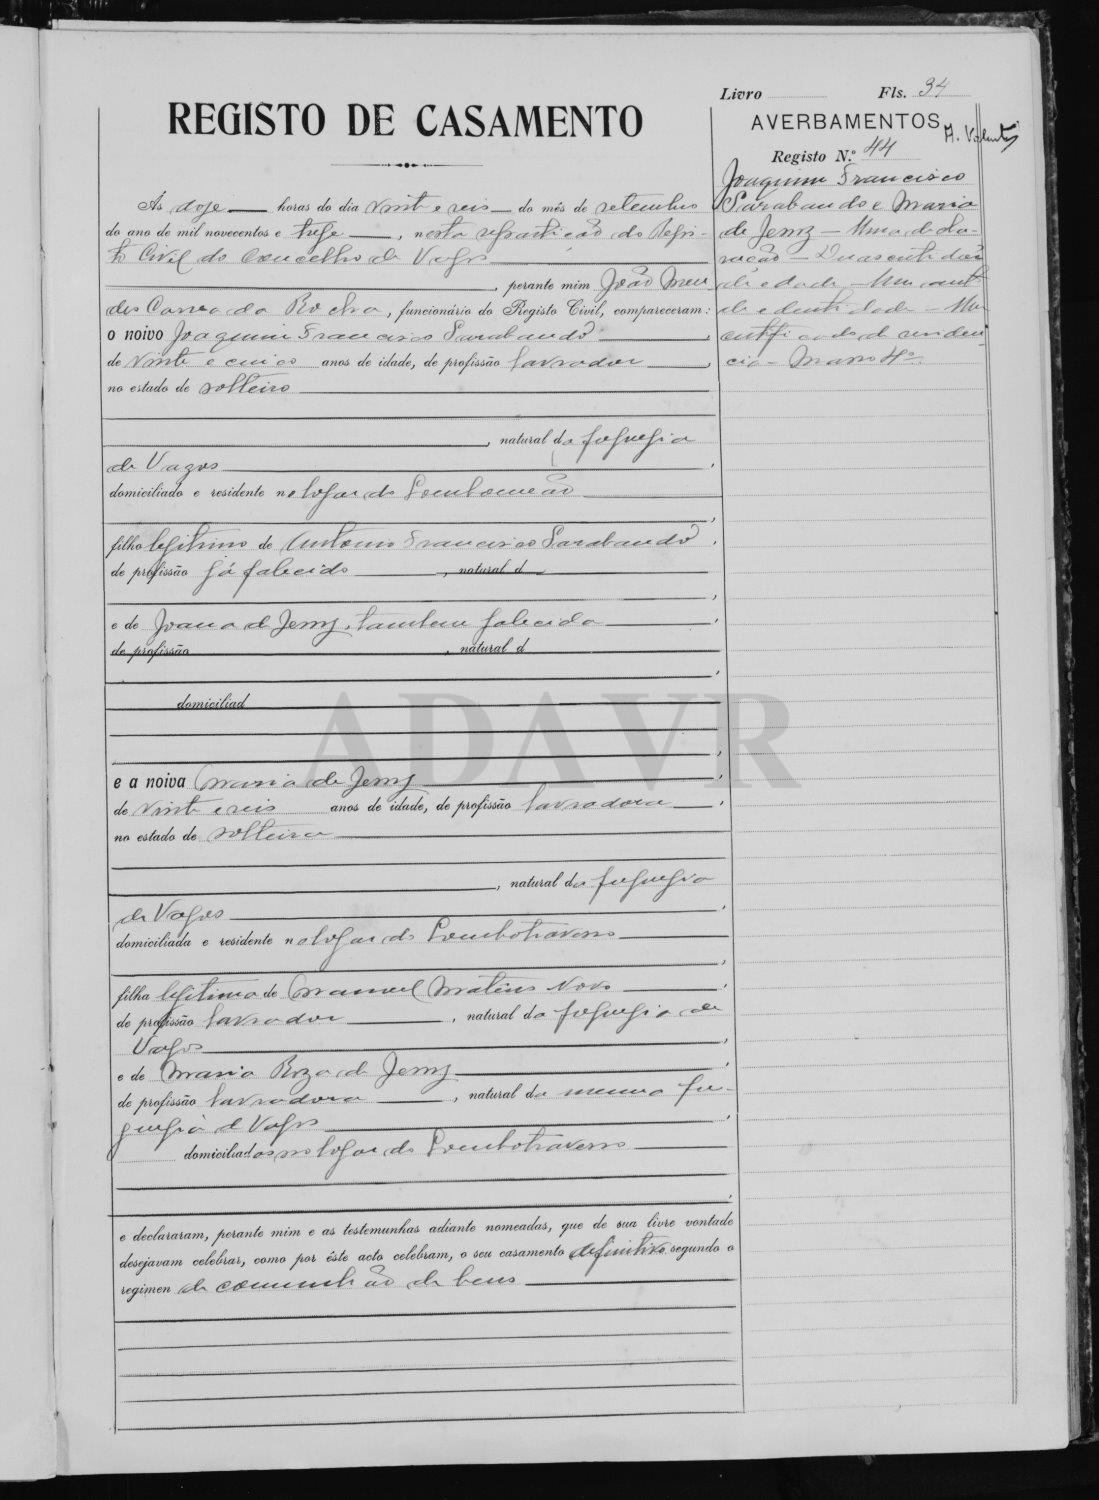 Livro Fls. 34
REGISTO DE CASAMENTO
AVERBAMENTOS
Registo N.º 44
Joaquim Francisco
Sarabando e Maria
de Jesus — Uma decla-
ração — Duas certidões
de idade — Um
de identidade — Um
certificado de residen-
cia — Masso 4º
Ás doze horas do dia vinte e seis do mês de setembro
do ano de mil novecentos e treze, nesta repartição do Regis-
to Civil do Concelho de Vagos
, perante mim João Men
des Correa da Rocha, funcionário do Registo Civil, compareceram:
o noivo Joaquim Francisco Sarabando
de vinte e cinco anos de idade, de profissão lavrador,
no estado de solteiro
, natural da freguesia
de Vagos,
domiciliado e residente no logar do Lombomeão
,
filho legitimo de Antonio Francisco Sarabando,
de profissão já falecido, natural d
,
e de Joana de Jesus, tambem falecida,
de profissão, natural d
,
domiciliad
,
e a noiva Maria de Jesus,
de vinte e seis anos de idade, de profissão lavradora,
no estado de solteira
, natural da freguesia
de Vagos,
domiciliada e residente no logar do Lombotravesso
,
filha legitima de Manuel Mateus Novo,
de profissão lavrador, natural da freguesia de
Vagos,
e de Maria Roza de Jesus,
de profissão lavradora, natural da mesma fre-
guesia de Vagos,
domiciliados no logar do Lombotravesso
,
e declararam, perante mim e as testemunhas adiante nomeadas, que de sua livre vontade
desejavam celebrar, como por êste acto celebram, o seu casamento definitivo segundo o
regimen de comunhão de bens
ADAVR